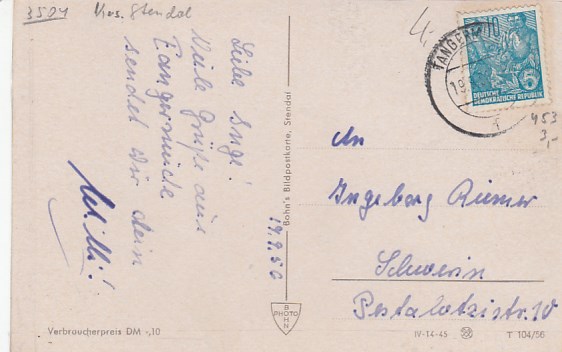 3504 Krs. Stendal
Liebe Inge!
Viele Grüße aus
Tangermünde
sendet Dir dein
Willi!
19.9.56
Bohn's Bildpostkarte, Stendal
BOHN
PHOTO
Verbraucherpreis DM -,10
4,
TANGERM
19.
10
5
DEUTSCHE
DEMOKRATISCHE REPUBLIK
453
3,-
An
Ingeborg Riemer
Schwerin
Pestalozzistr. 10
IV-14-45
T 104/56